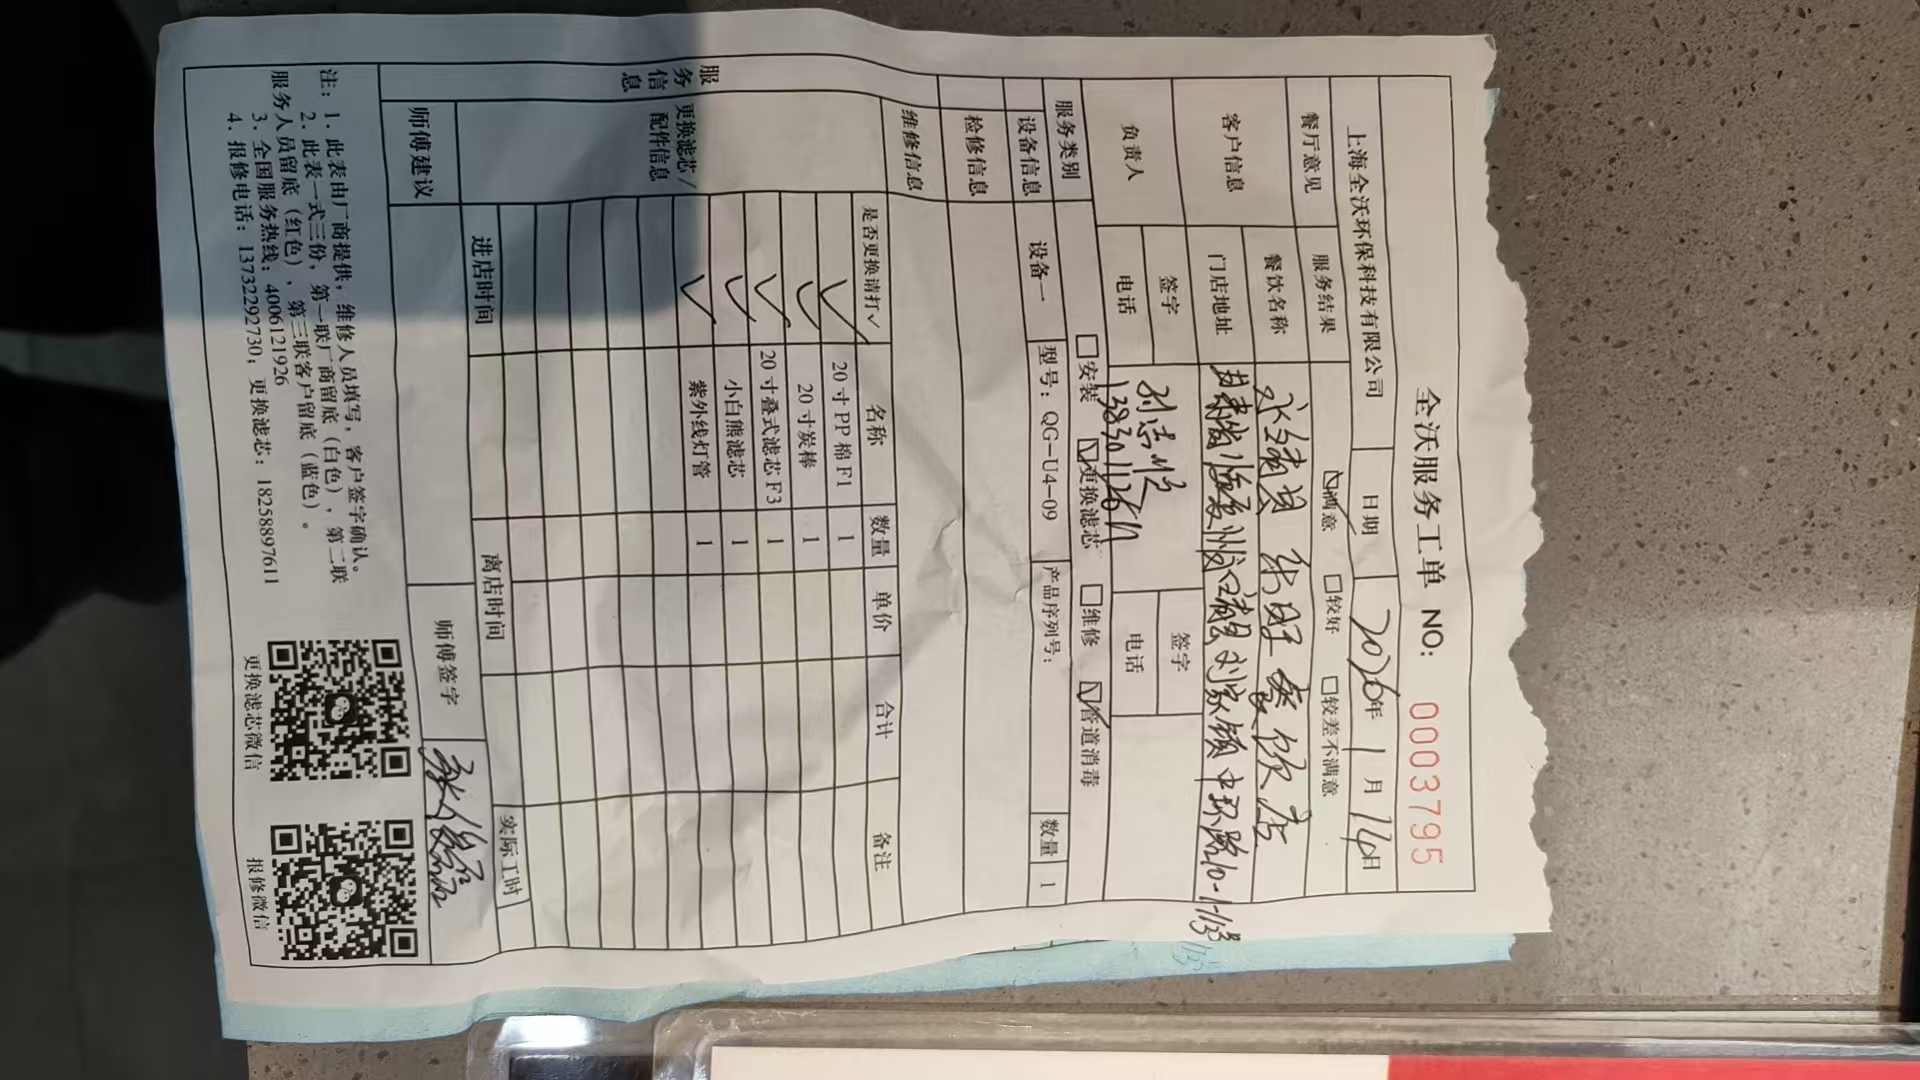 全沃服务工单 NO: 00037795
上海全沃环保科技有限公司 日期 2026年1月14日
餐厅意见 服务结果 ☑满意 □较好 □较差不满意
客户信息 餐饮名称 永靖县 餐饮店
门店地址 甘肃省临夏州永靖县刘家镇中环路10-1-113号
负责人 签字 签字
电话 电话
服务类别 □安装 ☑更换滤芯 □维修 ☑管道消毒
设备信息 设备一 型号：QG-U4-09 产品序列号： 数量 1
检修信息
维修信息
服务信息
更换滤芯/配件信息
是否更换请打✓ 名称 数量 单价 合计 备注
✓ 20寸PP棉F1 1
✓ 20寸炭棒 1
✓ 20寸叠式滤芯F3 1
✓ 小白熊滤芯 1
✓ 紫外线灯管 1
进店时间 离店时间 实际工时
师傅建议 师傅签字
注：1. 此表由厂商提供，维修人员填写，客户签字确认。
2. 此表一式三份，第一联厂商留底（白色），第二联
服务人员留底（红色），第三联客户留底（蓝色）。
3. 全国服务热线：4006121926
4. 报修电话：13732292730；更换滤芯：18258897611
更换滤芯微信 报修微信